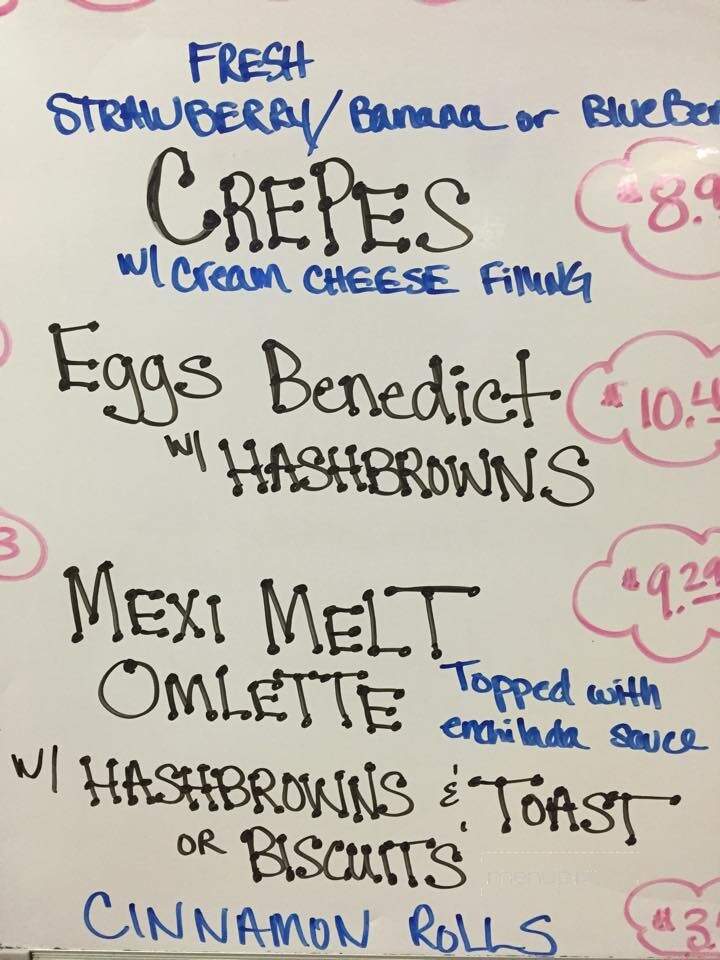 FRESH
STRAWBERRY/Banana or BlueBer
CREPES
$8.9
w/ Cream CHEESE Filling
Eggs Benedict
$10.4
w/ HASHBROWNS
3
MEXI MELT
$9.29
OMLETTE
Topped with
enchilada sauce
w/ HASHBROWNS & TOAST
OR BISCUITS
CINNAMON ROLLS
$3.